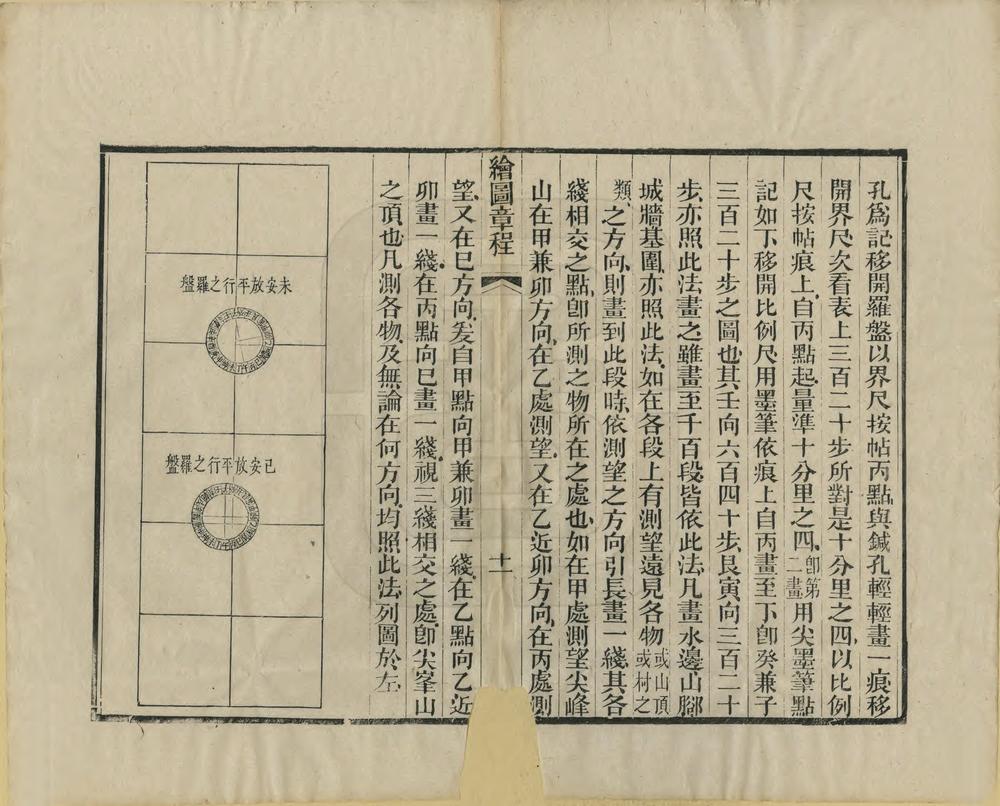 孔爲記移開羅盤以界尺按帖丙點與鍼孔輕輕畫一痕移
開界尺次看表上三百二十步所對是十分里之四以比例
尺按帖痕上自丙點起量準十分里之四即第二畫用尖墨筆點
記如丁移開比例尺用墨筆依痕上自丙畫至丁卽癸兼子
三百二十步之圖也其壬向六百四十步艮寅向三百二十
步亦照此法畫之雖畫至千百段皆依此法凡畫水邊山腳
城牆基圍亦照此法如在各段上有測望遠見各物或山頂或村之
類之方向則畫到此段時依測望之方向引長畫一綫其各
綫相交之點卽所測之物所在之處也如在甲處測望尖峰
山在甲兼卯方向在乙處測望又在乙近卯方向在丙處測
繪圖章程
十一
望又在巳方向爰自甲點向甲兼卯畫一綫在乙點向乙近
卯畫一綫在丙點向巳畫一綫視三綫相交之處卽尖峯山
之頂也凡測各物及無論在何方向均照此法列圖於左
未安放平行之羅盤
已安放平行之羅盤